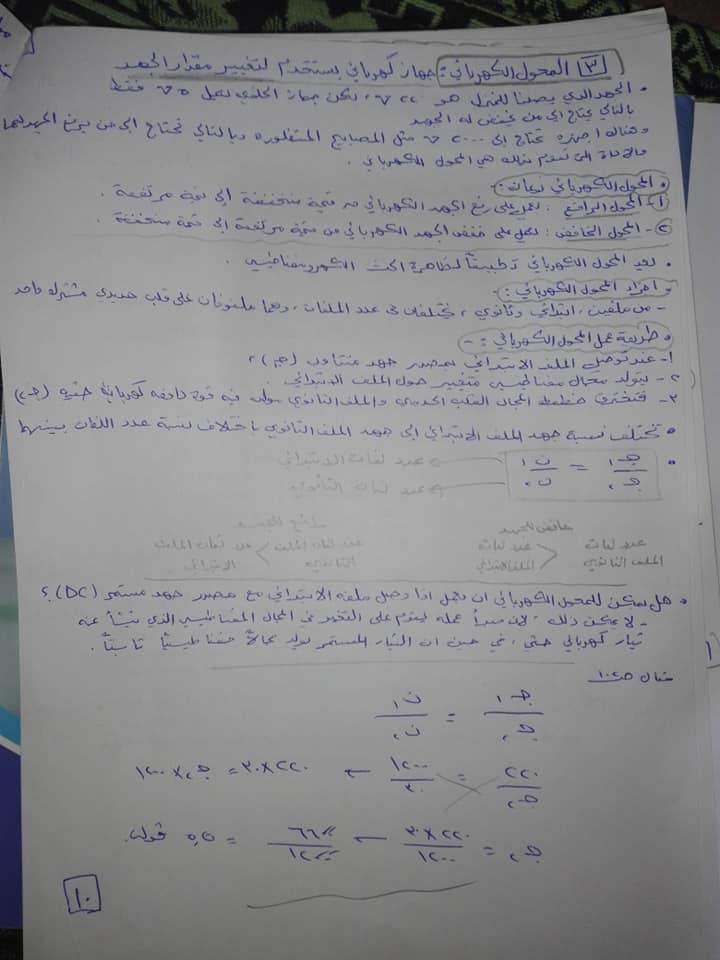 ٣ المحول الكهربائي: جهاز كهربائي يستخدم لتغيير مقدار الجهد
• الجهد الذي يصلنا للمنزل هو ٢٢٠ v، لكن جهاز الخلوي يعمل ٥ v فقط
بالتالي يحتاج الى من يخفض له الجهد
وهناك اجهزة تحتاج الى ٢٠٠٠٠ v مثل المصابيع المتفلوره وبالتالي تحتاج الى من يرفع الجهد لها
والأداة التي تقوم بذلك هي المحول الكهربائي.
• المحول الكهربائي نوعان:
١- المحول الرافع: يعمل على رفع الجهد الكهربائي من قيمة منخفضة الى قيمة مرتفعة.
٢- المحول الخافض: يعمل على خفض الجهد الكهربائي من قيمة مرتفعة الى قيمة منخفضة.
• يعد المحول الكهربائي تطبيقاً لظاهرة الحث الكهرومغناطيسي.
• اجزاء المحول الكهربائي:
- من ملفين، ابتدائي وثانوي، يختلفان في عدد اللفات، وهما ملفوفان على قلب حديدي مشترك واحد
• طريقة عمل المحول الكهربائي:-
١- عند توصيل الملف الابتدائي بمصدر جهد متناوب (جـ١)
٢- يتولد مجال مغناطيسي متغير حول الملف الابتدائي.
٣- فتخترق خطوط المجال القلب الحديدي والملف الثانوي مولده فيه قوة دافعه كهربائية حثية (جـ٢)
• تختلف نسبة جهد الملف الابتدائي الى جهد الملف الثانوي باختلاف نسبة عدد اللفات بينهما
• جـ١ / جـ٢ = ن١ / ن٢
عدد لفات الابتدائي
عدد لفات الثانوي
خافض للجهد
عدد لفات الملف الثانوي < عدد لفات الملف الابتدائي
رافع للجهد
عدد لفات الملف الثانوي > عدد لفات الملف الابتدائي
• هل يمكن للمحول الكهربائي ان يعمل اذا وصل ملفه الابتدائي مع مصدر جهد مستمر (DC)؟
- لا يمكن ذلك، لان مبدأ عمله يقوم على التغير في المجال المغناطيسي الذي ينشأ عنه
تيار كهربائي حثي، في حين ان التيار المستمر يولد مجالاً مغناطيسياً ثابتاً.
مثال ص١٠٢
جـ١ / جـ٢ = ن١ / ن٢
٢٢٠ / جـ٢ = ١٢٠٠ / ٣٠ ← ٣٠×٢٢٠ = جـ٢ × ١٢٠٠
جـ٢ = ٣٠×٢٢٠ / ١٢٠٠ ← ٦٦٠٠ / ١٢٠٠ = ٥,٥ فولت.
١٠